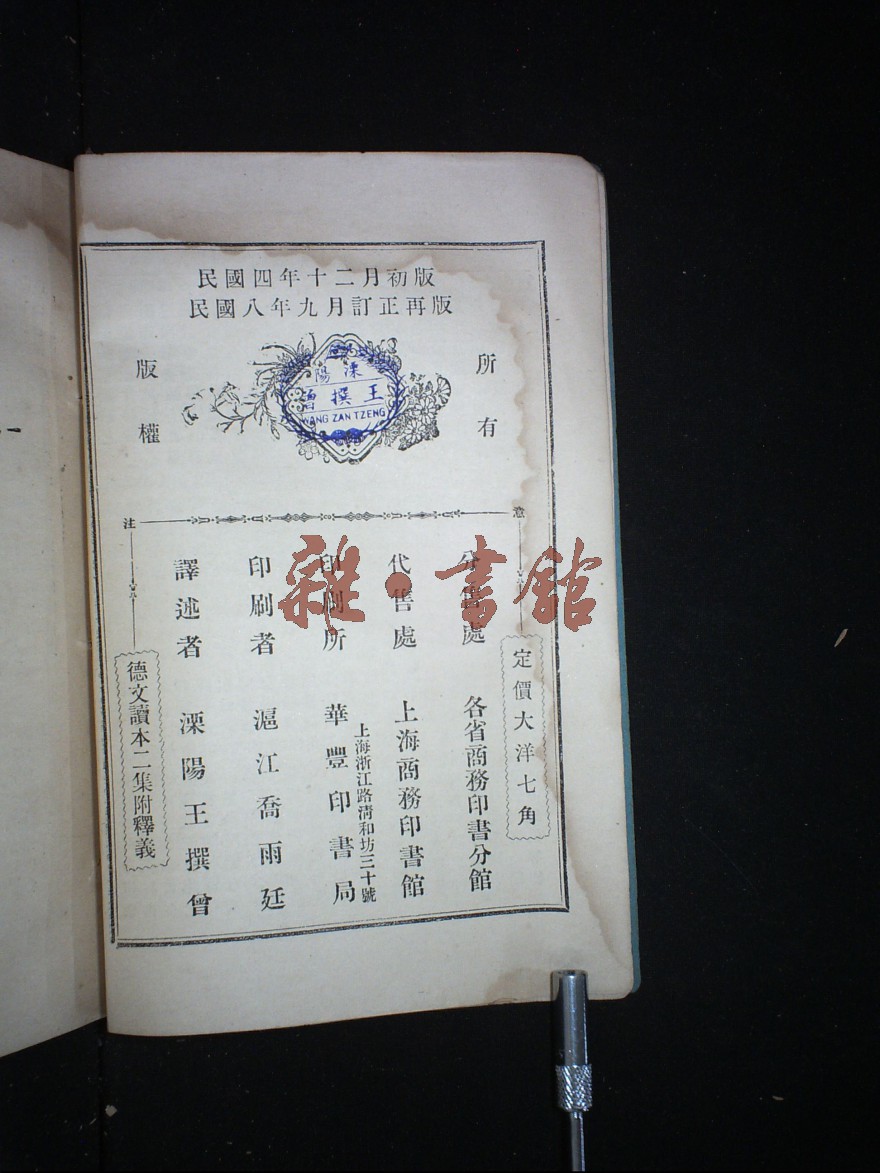 民國四年十二月初版
民國八年九月訂正再版
版權
所有
溧陽
王撰曾
WANG ZAN TZENG
注
意
德文讀本二集附釋義
譯述者 溧陽王撰曾
印刷者 滬江喬雨廷
印刷所 華豐印書局
上海浙江路淸和坊三十號
代售處 上海商務印書館
分售處 各省商務印書分館
定價大洋七角
雜·書館